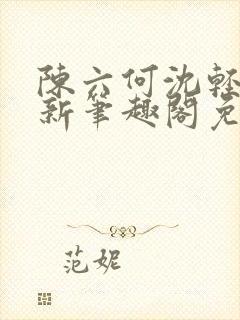 陳六何沈輕
新筆趣閣免
范妮